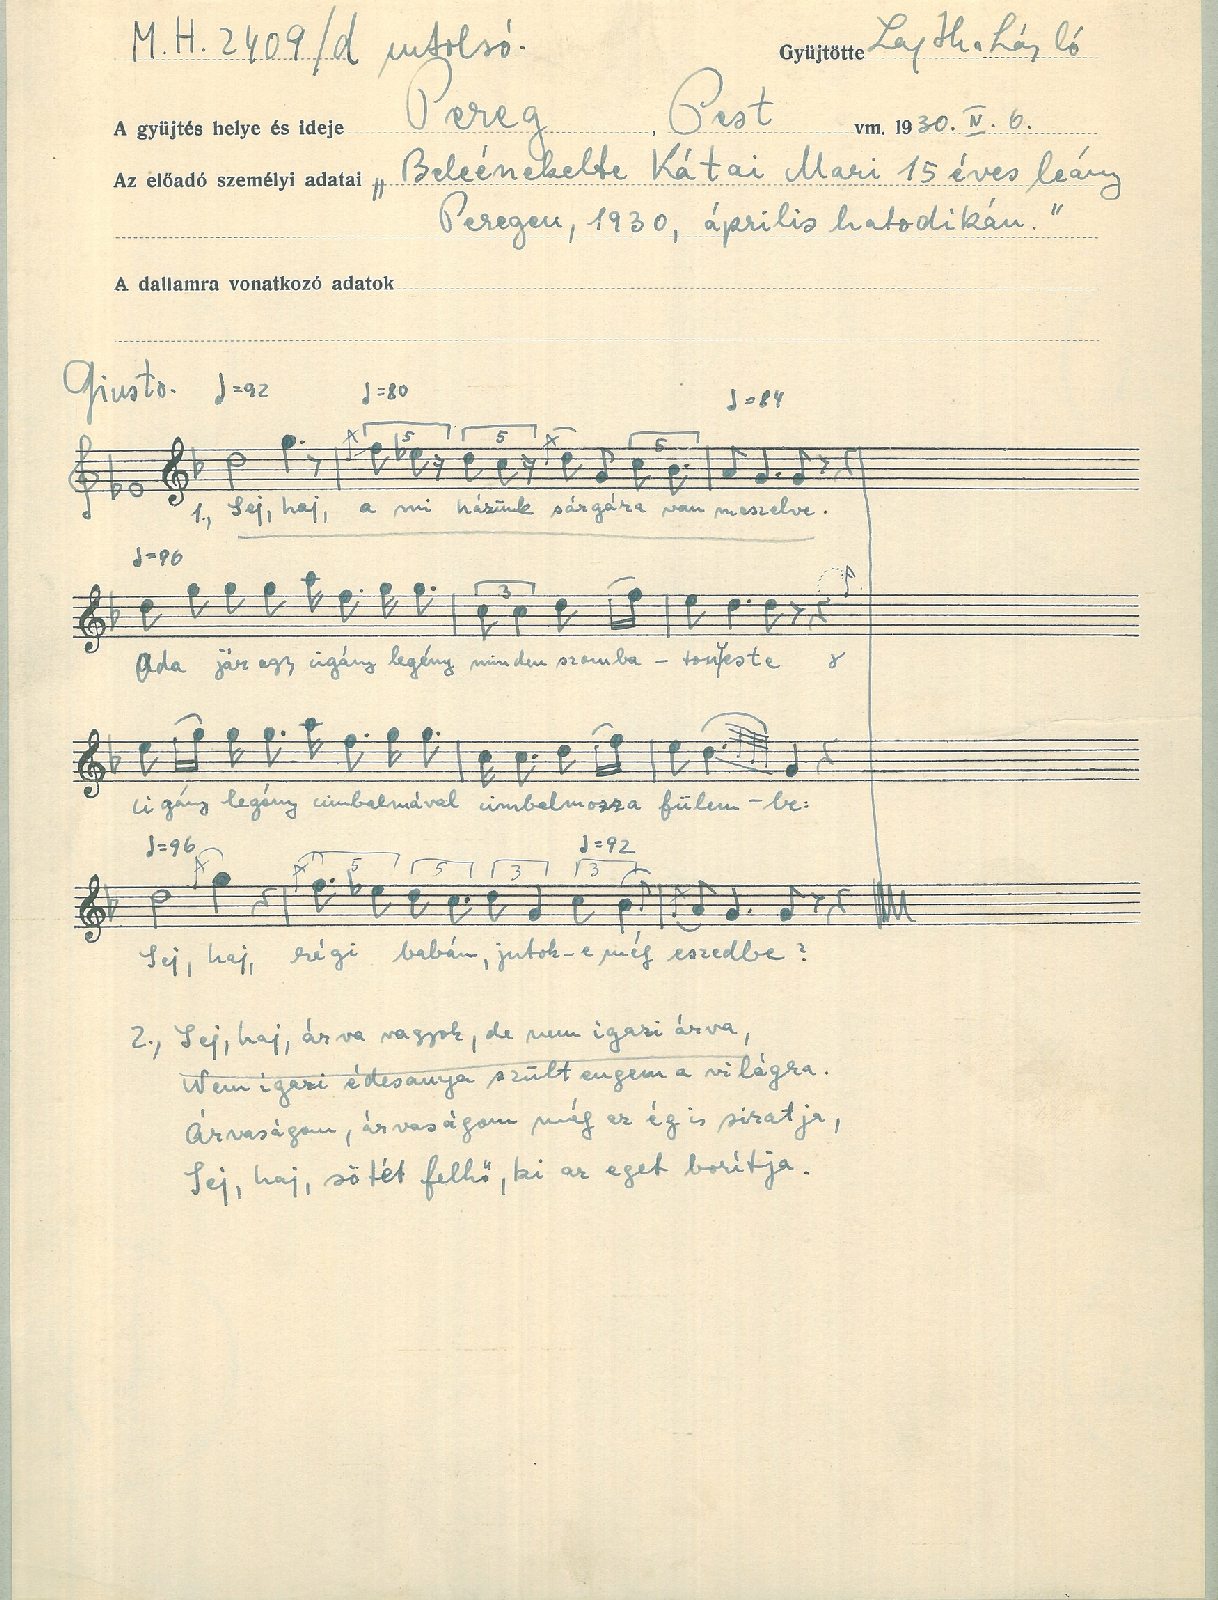 M. H. 2409/d utolsó.
Gyüjtötte Lajtha László
A gyüjtés helye és ideje Pereg, Pest vm. 1930. IV. 6.
Az előadó személyi adatai „Beleénekelte Kátai Mari 15 éves leány
Peregen, 1930, április hatodikán."
A dallamra vonatkozó adatok
Giusto. ♩=92 ♩=80 ♩=84
5 5 5
1., Sej, haj, a mi házunk sárgára van meszelve.
♩=96
3
Oda jár egy cigány legény minden szomba - ton este
cigány legény cimbalmával cimbalmozza fülem - be:
♩=96 ♩=92
5 5 3 3
Sej, haj, régi babám, jutok-e még eszedbe?
2., Sej, haj, árva vagyok, de nem igazi árva,
Nem igazi édesanya szült engem a világra.
Árvaságom, árvaságom még az ég is siratja,
Sej, haj, sötét felhő, ki az eget borítja.